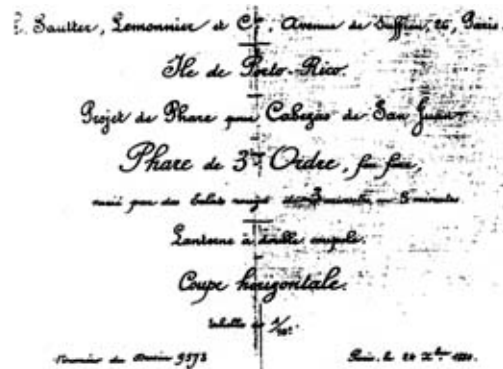 Sautter, Lemonnier et Cie, Avenue de Suffren, 26, Paris.
Ile de Porto-Rico.
Projet de Phare pour Cabezas de San Juan
Phare de 3me Ordre, feu fixe,
varié par des Eclats rouges de 3 minutes en 3 minutes
Lanterne à double coupole.
Coupe horizontale.
Echelle de 1/10e
Numéro du Dessin 9573
Paris, le 24 Xbre